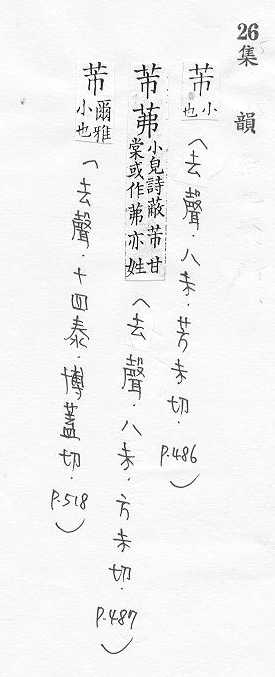 26集韻
芾小也(去聲.八未.芳未切.P.486)
芾茀小皃詩蔽芾甘棠或作茀亦姓(去聲.八未.方未切.P.487)
芾爾雅小也(去聲.十四泰.博蓋切.P.518)